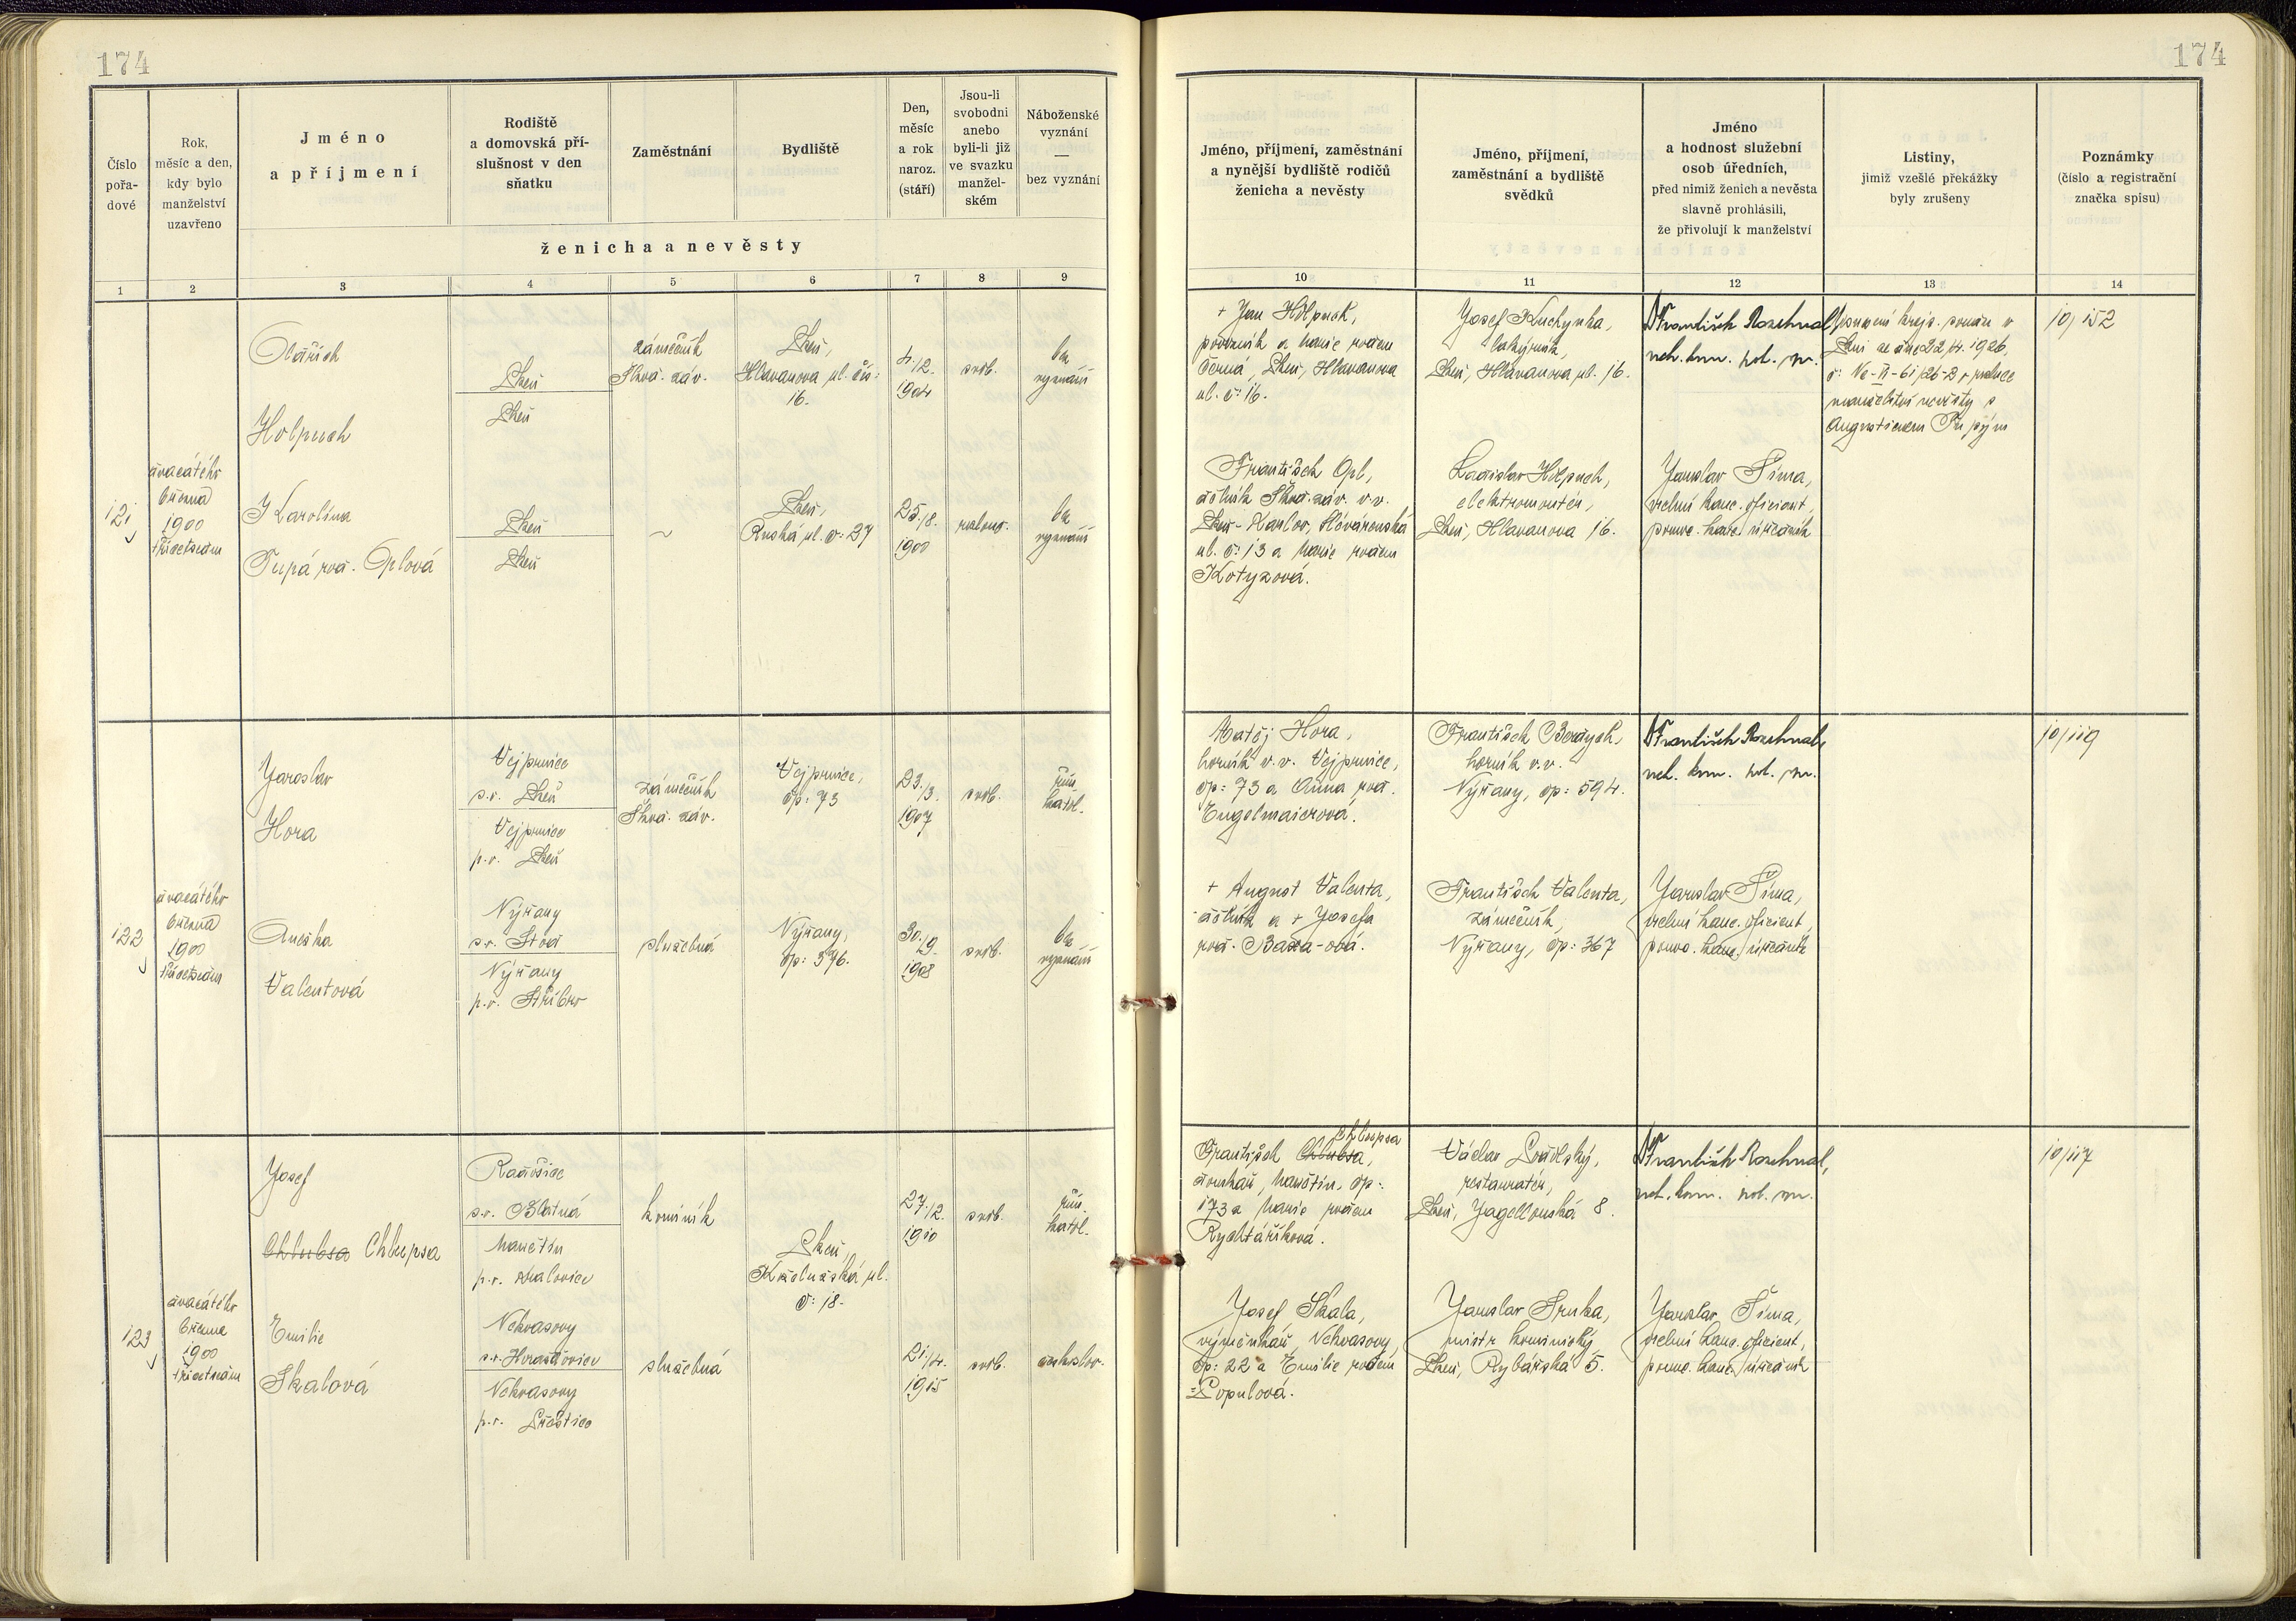 174
174
Číslo
pořa-
dové
Rok,
měsíc a den,
kdy bylo
manželství
uzavřeno
Jméno
a příjmení
Rodiště
a domovská pří-
slušnost v den
sňatku
Zaměstnání
Bydliště
Den,
měsíc
a rok
naroz.
(stáří)
Jsou-li
svobodni
anebo
byli-li již
ve svazku
manžel-
ském
Náboženské
vyznání
—
bez vyznání
ženicha a nevěsty
Jméno, příjmení, zaměstnání
a nynější bydliště rodičů
ženicha a nevěsty
Jméno, příjmení,
zaměstnání a bydliště
svědků
Jméno
a hodnost služební
osob úředních,
před nimiž ženich a nevěsta
slavně prohlásili,
že přivolují k manželství
Listiny,
jimiž vzešlé překážky
byly zrušeny
Poznámky
(číslo a registrační
značka spisu)
1 2 3 4 5 6 7 8 9 10 11 12 13 14
121
dvacátého
března
1900
třicetosm
Oldřich
Holpuch
Plzeň
Plzeň
zámečník
Škod. záv.
Plzeň,
Hlavanova ul. čís:
16.
4./12.
1904
svob.
bez
vyznání
Karolina
Tupá roz. Oplová
Plzeň
Plzeň
~
Plzeň,
Ruská ul. č: 37
25./8.
1900
rozlouč.
bez
vyznání
+ Jan Holpuch,
provazník a Marie rozen
Černá, Plzeň, Hlavanova
ul. č: 16.
František Opl,
dělník Škod. záv. v. v.
Plzeň-Karlov,
ul. č: 13 a Marie rozen
Kotyzová.
Josef Kuchynka,
lakýrník,
Plzeň, Hlavanova ul. 16.
Ladislav Holpuch,
elektromontér,
Plzeň, Hlavanova 16.
František Rozhnal,
Jaroslav Šíma,
vrchní kanc. oficiant,
pomoc. kanc. úředník
Plzni ze dne 22./4. 1926,
manželství nevěsty s
Augustinem Tupým
10/152
122
dvacátého
března
1900
třicetosm
Jaroslav
Hora
Vejprnice
s.o. Plzeň
Vejprnice
p.o. Plzeň
zámečník
Škod. záv.
Vejprnice,
čp: 73
23./3.
1907
svob.
řím.
katol.
Anežka
Valentová
Nýřany
s.o. Stod
Nýřany
p.o. Stříbro
služebná
Nýřany,
čp: 376.
30./9.
1908
svob.
bez
vyznání
Matěj Hora,
horník v.v. Vejprnice,
čp: 73 a Anna roz.
Engelmaierová.
+ August Valenta,
dělník a + Josefa
roz. Baxa-ová.
František Beránek,
horník v.v.
Nýřany, čp: 594.
František Valenta,
zámečník,
Nýřany, čp: 367
František Rozhnal,
Jaroslav Šíma,
vrchní kanc. oficiant,
pomoc. kanc. úředník
10/119
123
dvacátého
března
1900
třicetosm
Josef
Chlubsa Chlupsa
Radošice
s.o. Blatná
Manětín
p.o. Kralovice
kominík
Plzeň,
č: 18.
27./2.
1910
svob.
řím.
katol.
Emilie
Skalová
Nekvasovy
s.o. Horažďovice
Nekvasovy
p.o. Přeštice
služebná
21./4.
1915
svob.
českoslov.
Chlupsa
František Chlubsa,
domkář, Manětín, čp:
173 a Marie rozen
Rychtáříková.
Josef Skala,
výměnkář, Nekvasovy,
čp: 22 a Emilie rozen
=Populová.
Václav Lodlský,
restauratér,
Plzeň, Jagellonská 8.
Jaroslav Hruška,
mistr kominický,
Plzeň, Rybářská 5.
František Rozhnal,
Jaroslav Šíma,
vrchní kanc. oficient,
pomoc. kanc. úředník
10/117